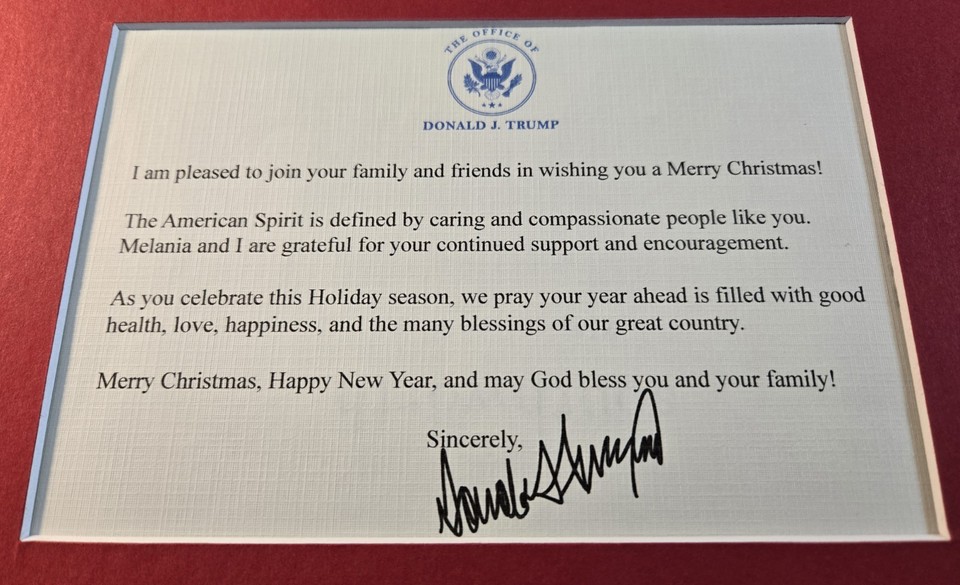 THE OFFICE OF
DONALD J. TRUMP
I am pleased to join your family and friends in wishing you a Merry Christmas!
The American Spirit is defined by caring and compassionate people like you.
Melania and I are grateful for your continued support and encouragement.
As you celebrate this Holiday season, we pray your year ahead is filled with good
health, love, happiness, and the many blessings of our great country.
Merry Christmas, Happy New Year, and may God bless you and your family!
Sincerely,
Donald Trump